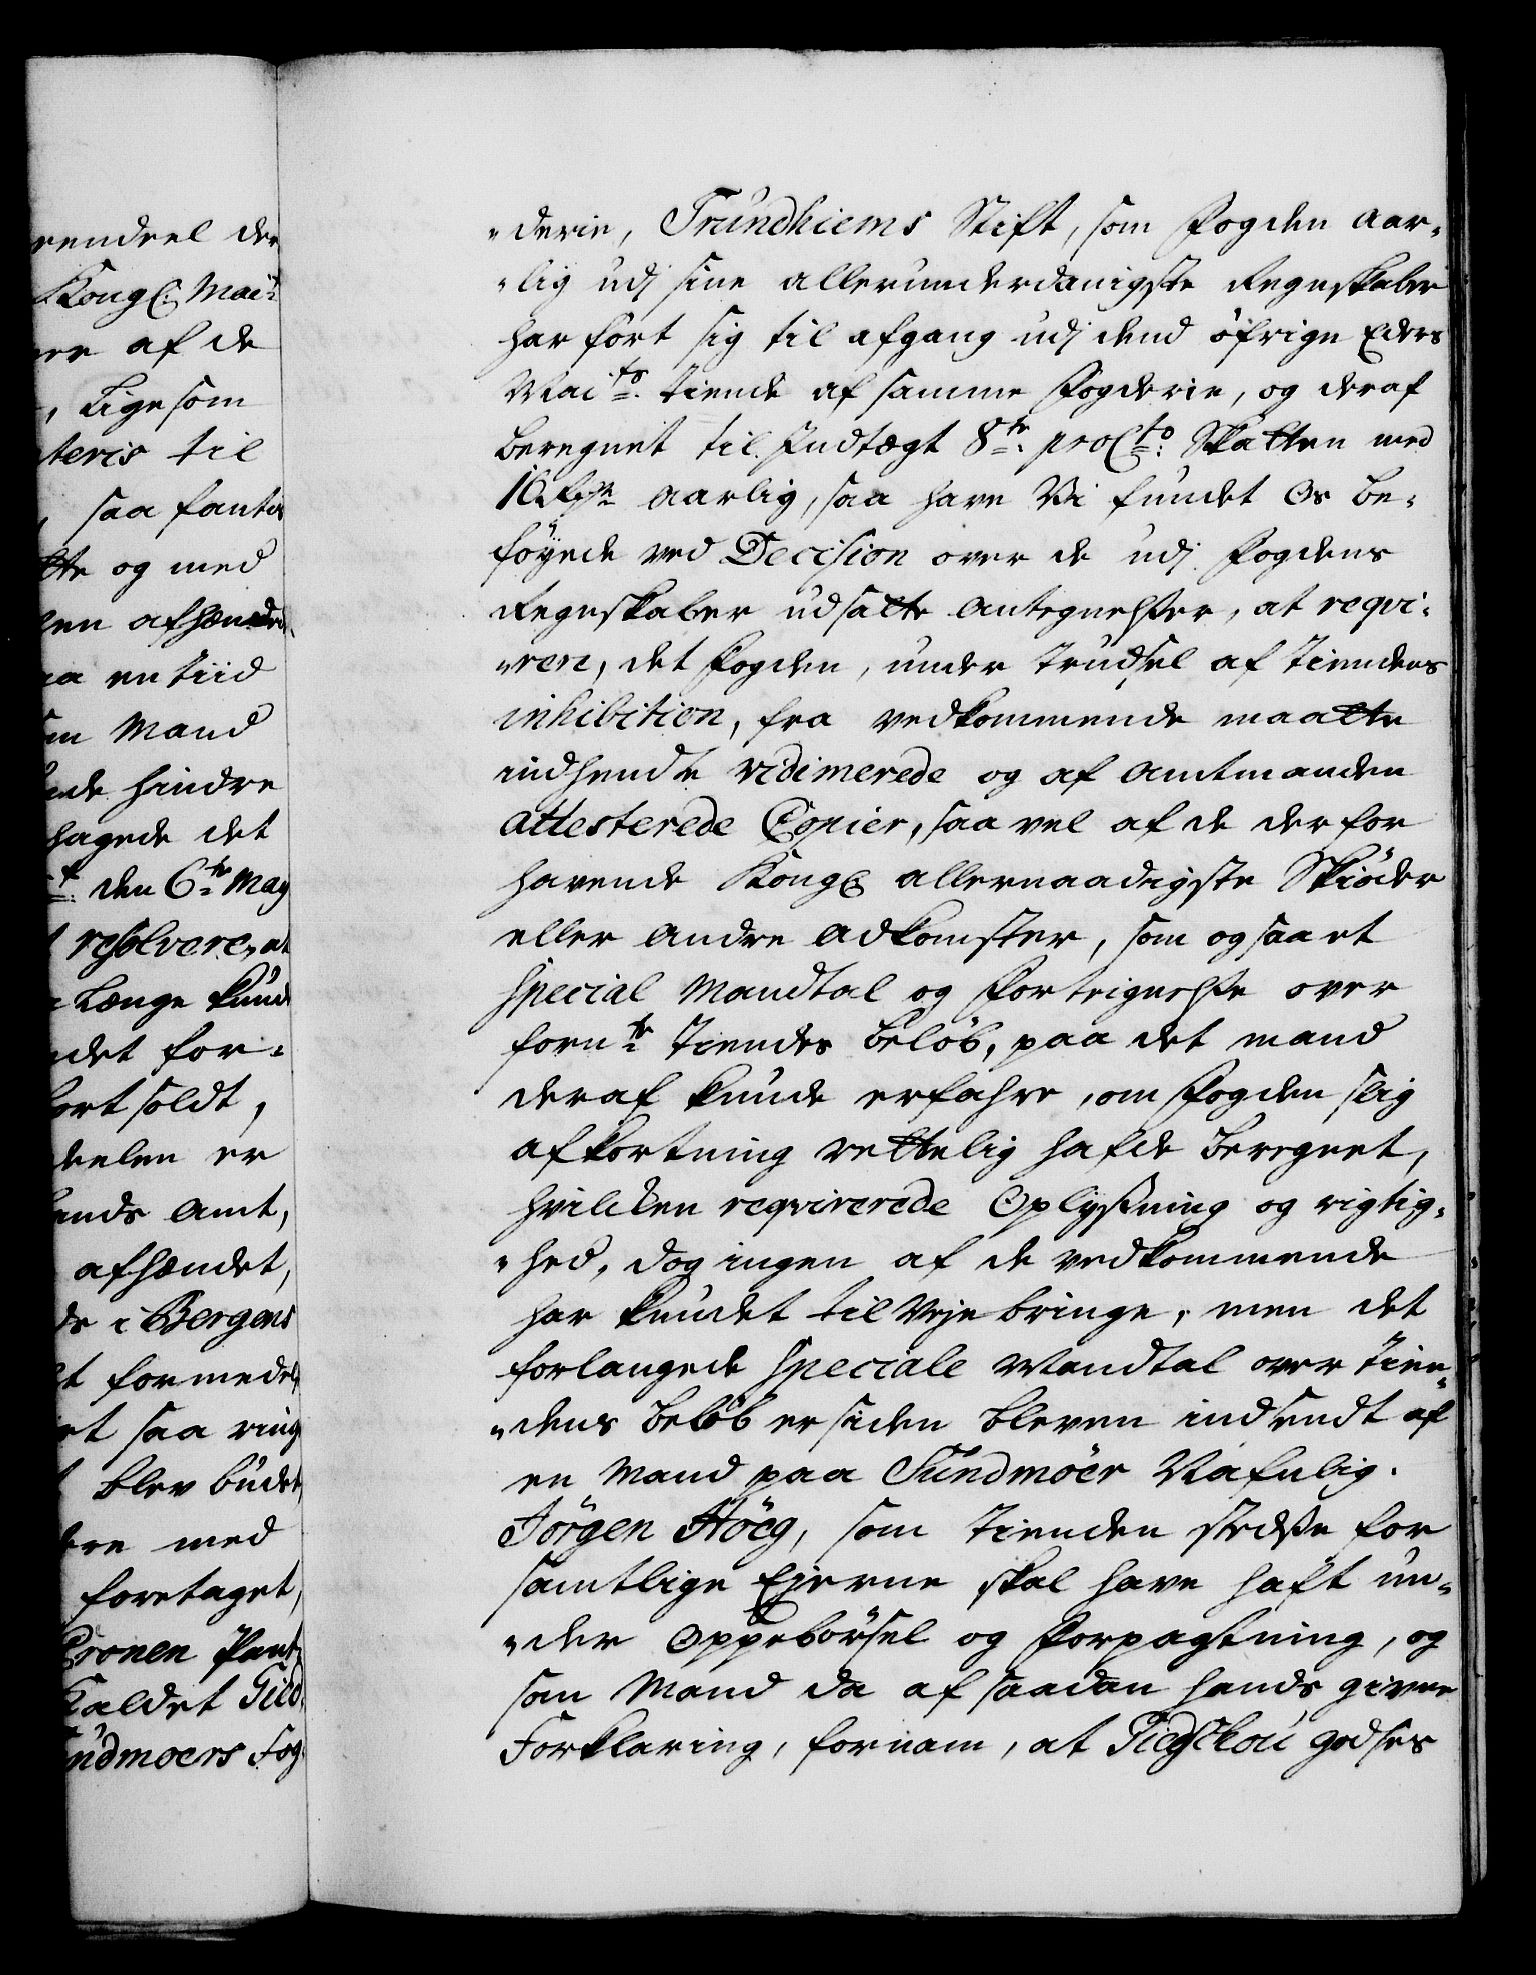 rendeel der
Kongl: Mai.ts
ere af de
, Ligesom
teris til
, saa fantes
tte og med
len afhænde
aa en tiid
om Mand
ende hindre
hagede det
den 6te May
resolvere, at
Længe kund
det for-
bort soldt,
deelen er
lands Amt,
afhændet,
ds i Bergens
t formedelst
et saa ring
blev buden
ere med
foretaget,
Cronen Pant-
kaldet Gied-
undmoers Fog-
"derie, Trundhiems Stift, som Fogden aar-
"lig udj sine allerunderdanigste Regnskaber
har ført sig til afgang udj dend öfrige Eders
Mai.ts Tiende af samme Fogderie, og deraf
beregnet til Indtægt 8te proCto: Skatten med
10 Rdr aarlig, saa have Vi fundet Os be-
föyede ved Decision over de udj Fogdens
Regnskaber udsatte Antegnelser, at reqvi-
"rere, det Fogden, under Trudsel af Tiendens
inhibition, fra vedkommende maatte
indhente vidimerede og af Amtmanden
attesterede Copier, saa vel af de derfor
havende Kongl allernaadigste Skiöder
eller andre Adkomster, som og saa et
Special Mandtal og Fortegnelse over
fornte Tiendes Belöb, paa det mand
deraf kunde erfahre, om Fogden slig
afkortning rettelig hafde beregnet,
hvilcken reqvirerede Oplysning og rigtig-
"hed, dog ingen af de vedkommende
har kundet tilveje bringe, men det
forlangede Speciale Mandtal over Tien-
"dens Belöb er siden bleven indsendt af
en Mand paa Sundmöer Nafnlig.
Jörgen Höeg, som Tienden stedse for
samtlige Ejerne skal have haft un-
"der Oppebörsel og Forpagtning, og
som Mand da af saadan hands givne
Forklaring, fornam, at Giedschou Godses